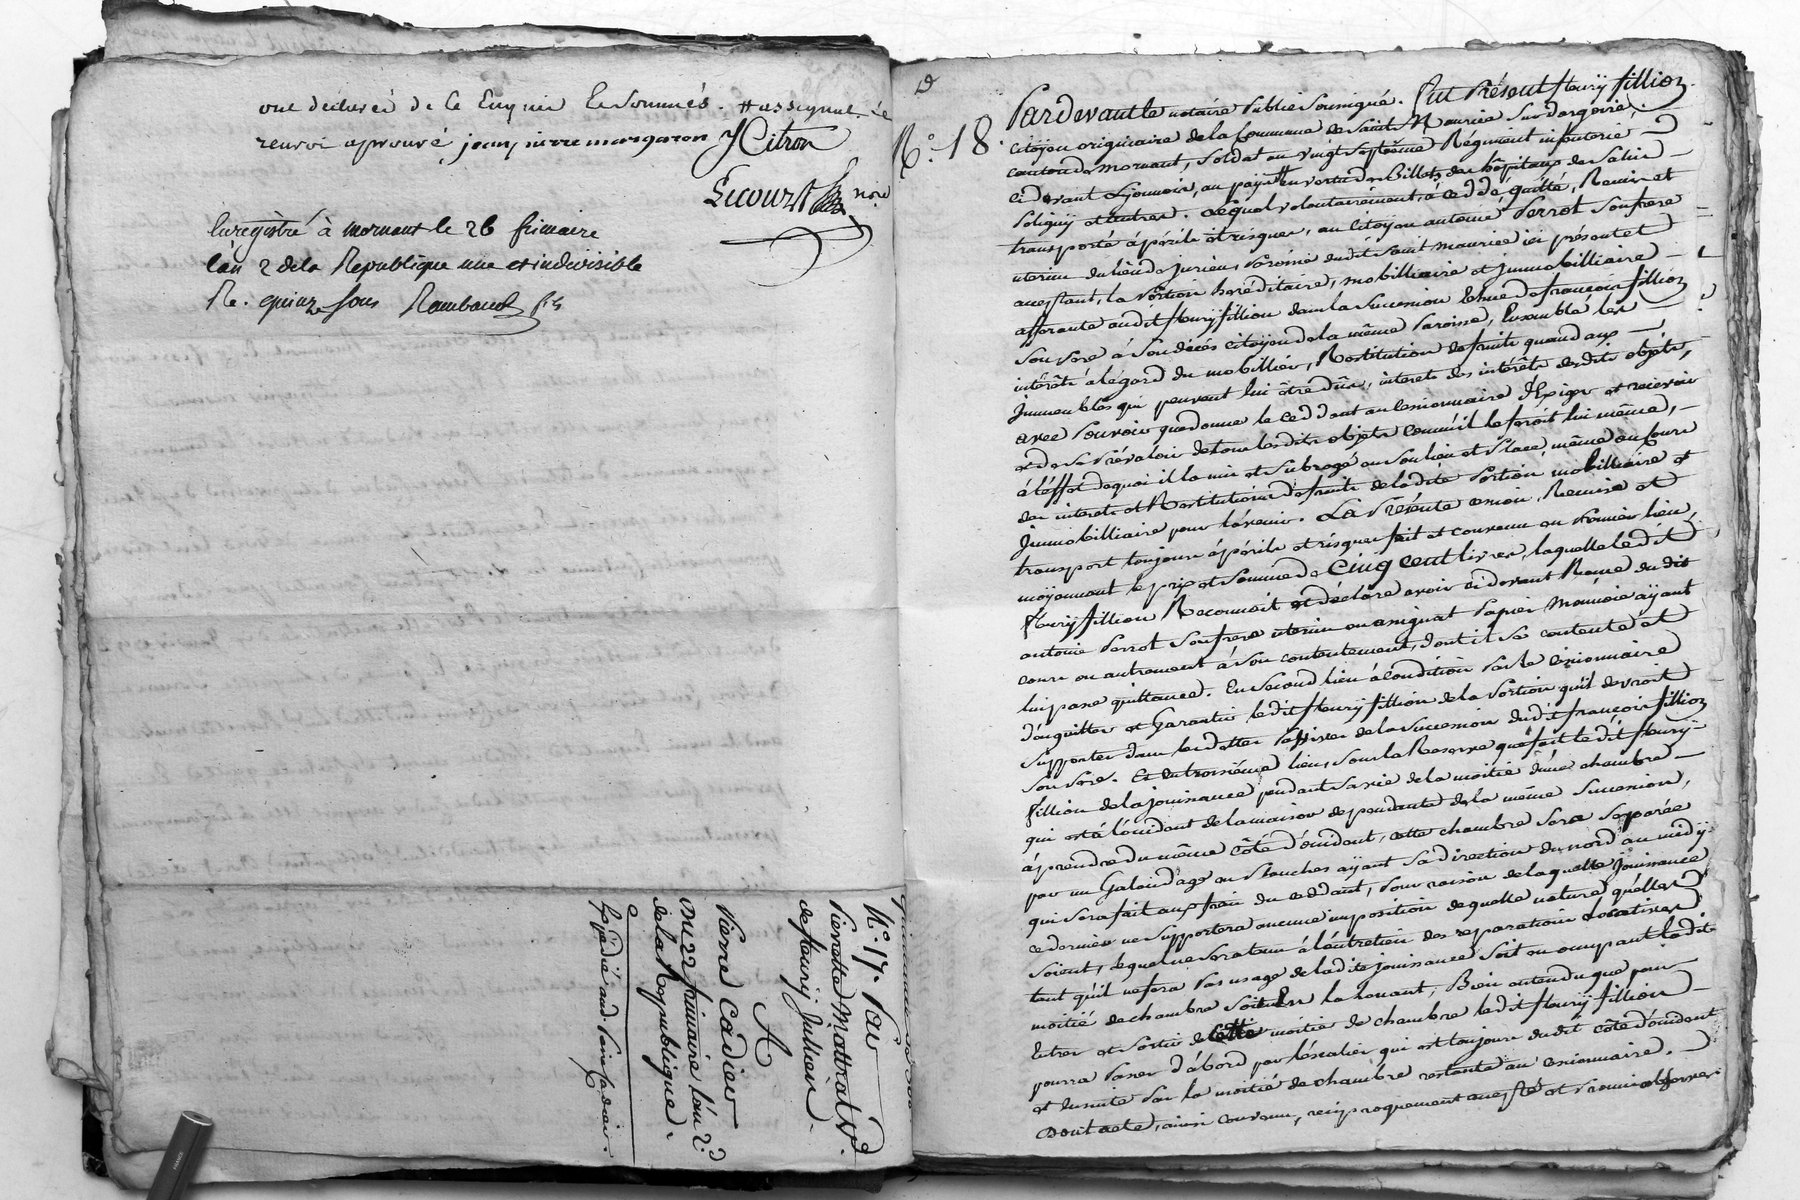 ont déclaré de ce Enquis & Sommés. # assignat. le
renvoi aprouvé jean pierre margaron J Citron
Lecourt nore
Enregistré à mornant le 26 frimaire
l'an 2 de la Republique une et indivisible
R. quinze sous Rambaud fils
N.° 17. Pour
Pierrette Mattrat Vve.
de fleurÿ Jullien.
A
Pierre Cadier
Du 22 frimaire l'an 2.e
de la Republique.
Expédié aud. Pierre Cadier.
N.° 18.
Pardevant le notaire Public Soussigné. Fut Présent fleurÿ fillion
Citoÿen originaire de la Commune de Saint Maurice Sur dargoire,
canton de mornant, Soldat au vingt Septième Régiment infanterie
ci devant Lÿonnois, au païs # en vertu des Billets des hôpitaux de Salin
Poligny et autres. Lequel volontairement, a cedé quitté, Remis et
transporté à périls et risques, au Citoÿen antoine Perrot Son frere
uterin du lieu de jurieu, Paroisse dudit Saint maurice ici présent et
acceptant, la Portion héréditaire, mobilliaire et immobilliaire
afferante audit fleurÿ fillion dans la Succession Echue de françois fillion
Son Père à Son décés citoÿen de la même Paroisse, Ensemble les
intérêts à légard du mobillier, Restitution de fruits quand aux
Immeubles qui peuvent lui être dûs, interets des intérêts desdits objets,
avec Pouvoir que donne le Ceddant au Cessionnaire d'Exiger et recevoir
et de se Prévaloir de tous lesdits objets comme il le feroit lui même,
à l'éffet de quoi il la mis et Subrogé en Son lieu et Place, même au Cours
des interets et Restitutions de fruits de ladite Portion mobilliaire et
Immobilliaire pour l'avenir. La Présente cession, Remise et
transport toujours à périls et risques fait et convenu en Premier lieu,
moÿennant le prix et Somme de Cinq Cent livres, laquelle ledit
fleurÿ fillion Reconnoit et déclare avoir ci devant Reçue dudit
antoine Perrot Son frere uterin en assignat Papier Monnoie aÿant
cours ou autrement à Son contentement, dont il Se contente et
lui passe quittance. En Second lieu à condition Par le Cessionnaire
d'acquitter et Garantir ledit fleurÿ fillion de la Portion qu'il devroit
Supporter dans les dettes Passives de la Succession dudit françois fillion
Son Père. Et En troisième lieu, Sous la Reserve que fait ledit fleurÿ
fillion de la jouissance pendant Sa vie de la moitié d'une chambre
qui est à l'occident de la maison dependante de la même Succession,
à prendre du même côté d'occident, cette chambre Sera Séparée
par un Galandage en Planches aÿant Sa direction du nord au midÿ
qui Sera fait aux frais du ceddant, Pour raison de laquelle jouissance
ce dernier ne Supportera aucune imposition de quelle nature qu'elles
Soient, lequel ne Sera tenu à l'entretien des reparations Locatives
tant qu'il ne fera Pas usage de ladite jouissance Soit en occupant ladite
moitié de chambre Soit En la Louant, Bien entendu que pour
Entrer et Sortir de cette moitié de chambre ledit fleurÿ fillion
pourra Passer d'abord par l'éscalier qui est toujours dudit côté d'occident
et Ensuite Par la moitié de chambre restante au Cessionnaire.
Dont acte, ainsi convenu, reciproquement accepté et Promis observer